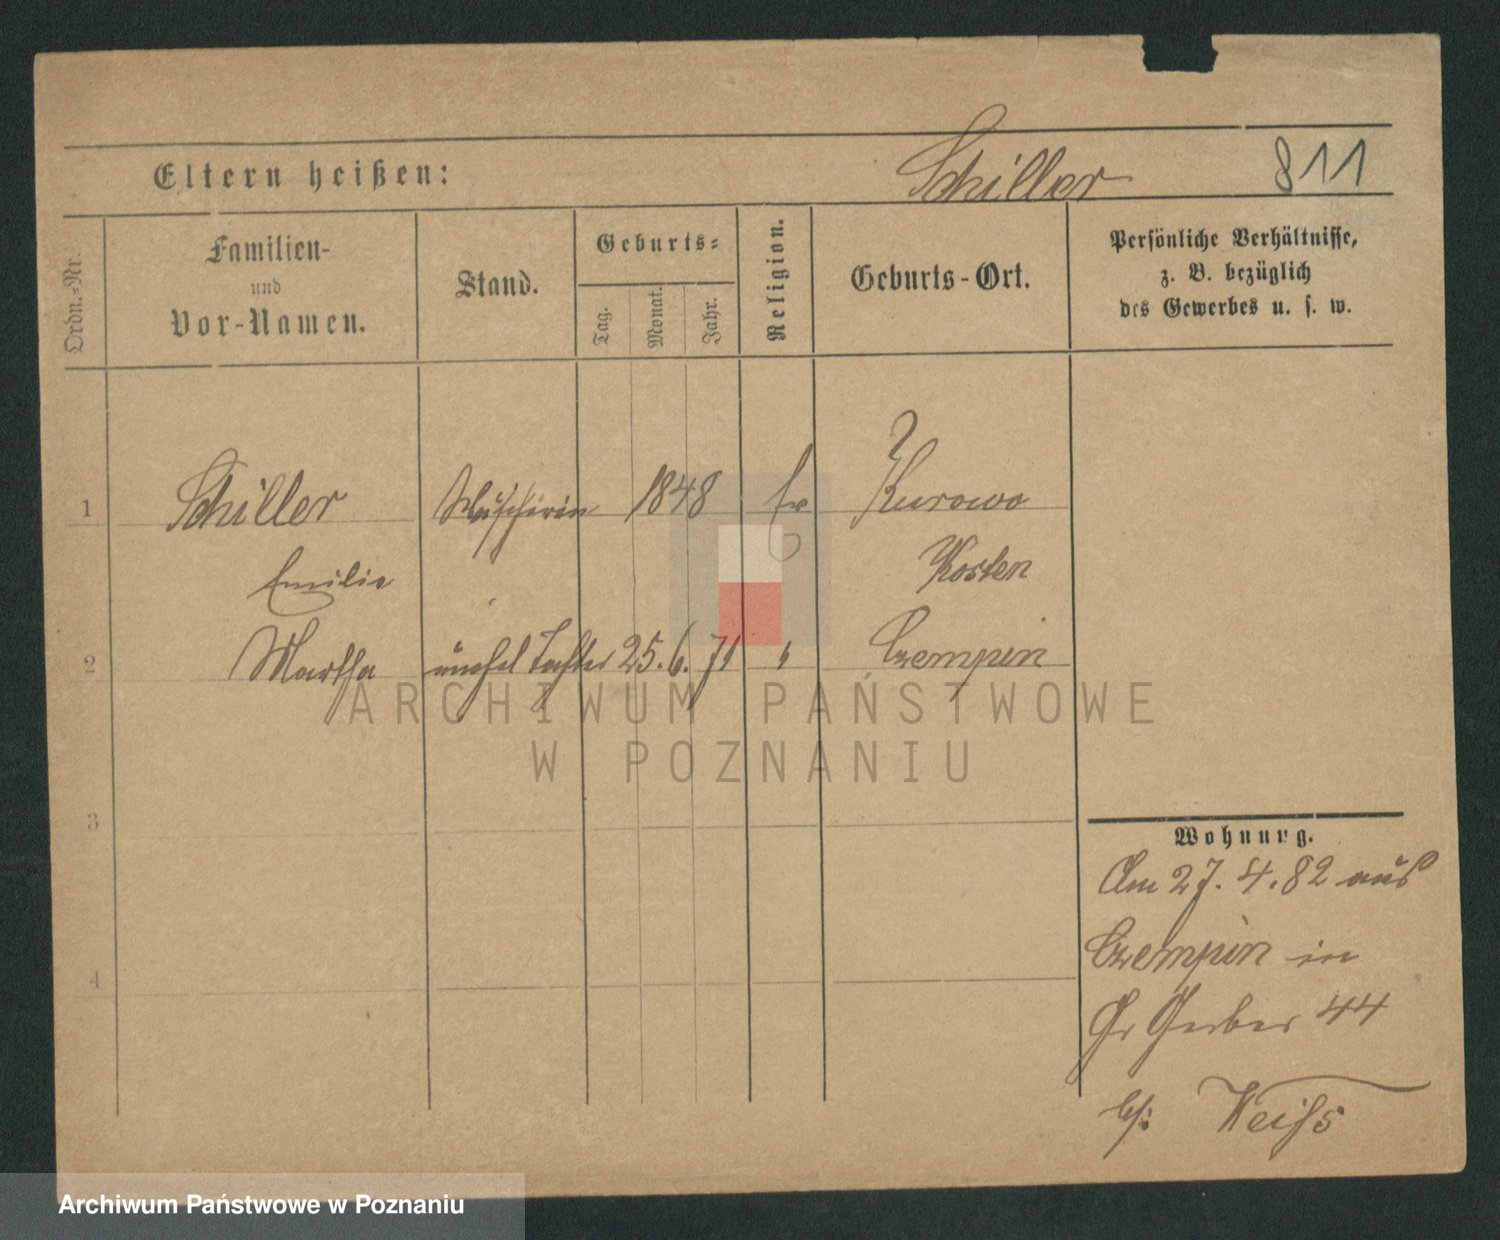 Schiller 811
Eltern heißen:
Ordn.-Nr.
Familien-
und
Vor-Namen.
Stand.
Geburts-
Tag.
Monat.
Jahr.
Religion.
Geburts-Ort.
Persönliche Verhältnisse,
z. B. bezüglich
des Gewerbes u. s. w.
1 Schiller 1848 Ev Kurowo
Emilie Kosten
2 Martha unehel Tochter 25. 6. 71 " Czempin
3
4
Wohnung.
Am 27. 4. 82 aus
Czempin in
Gr Gerber 44
bei Weiß
ARCHIWUM PAŃSTWOWE
W POZNANIU
Archiwum Państwowe w Poznaniu